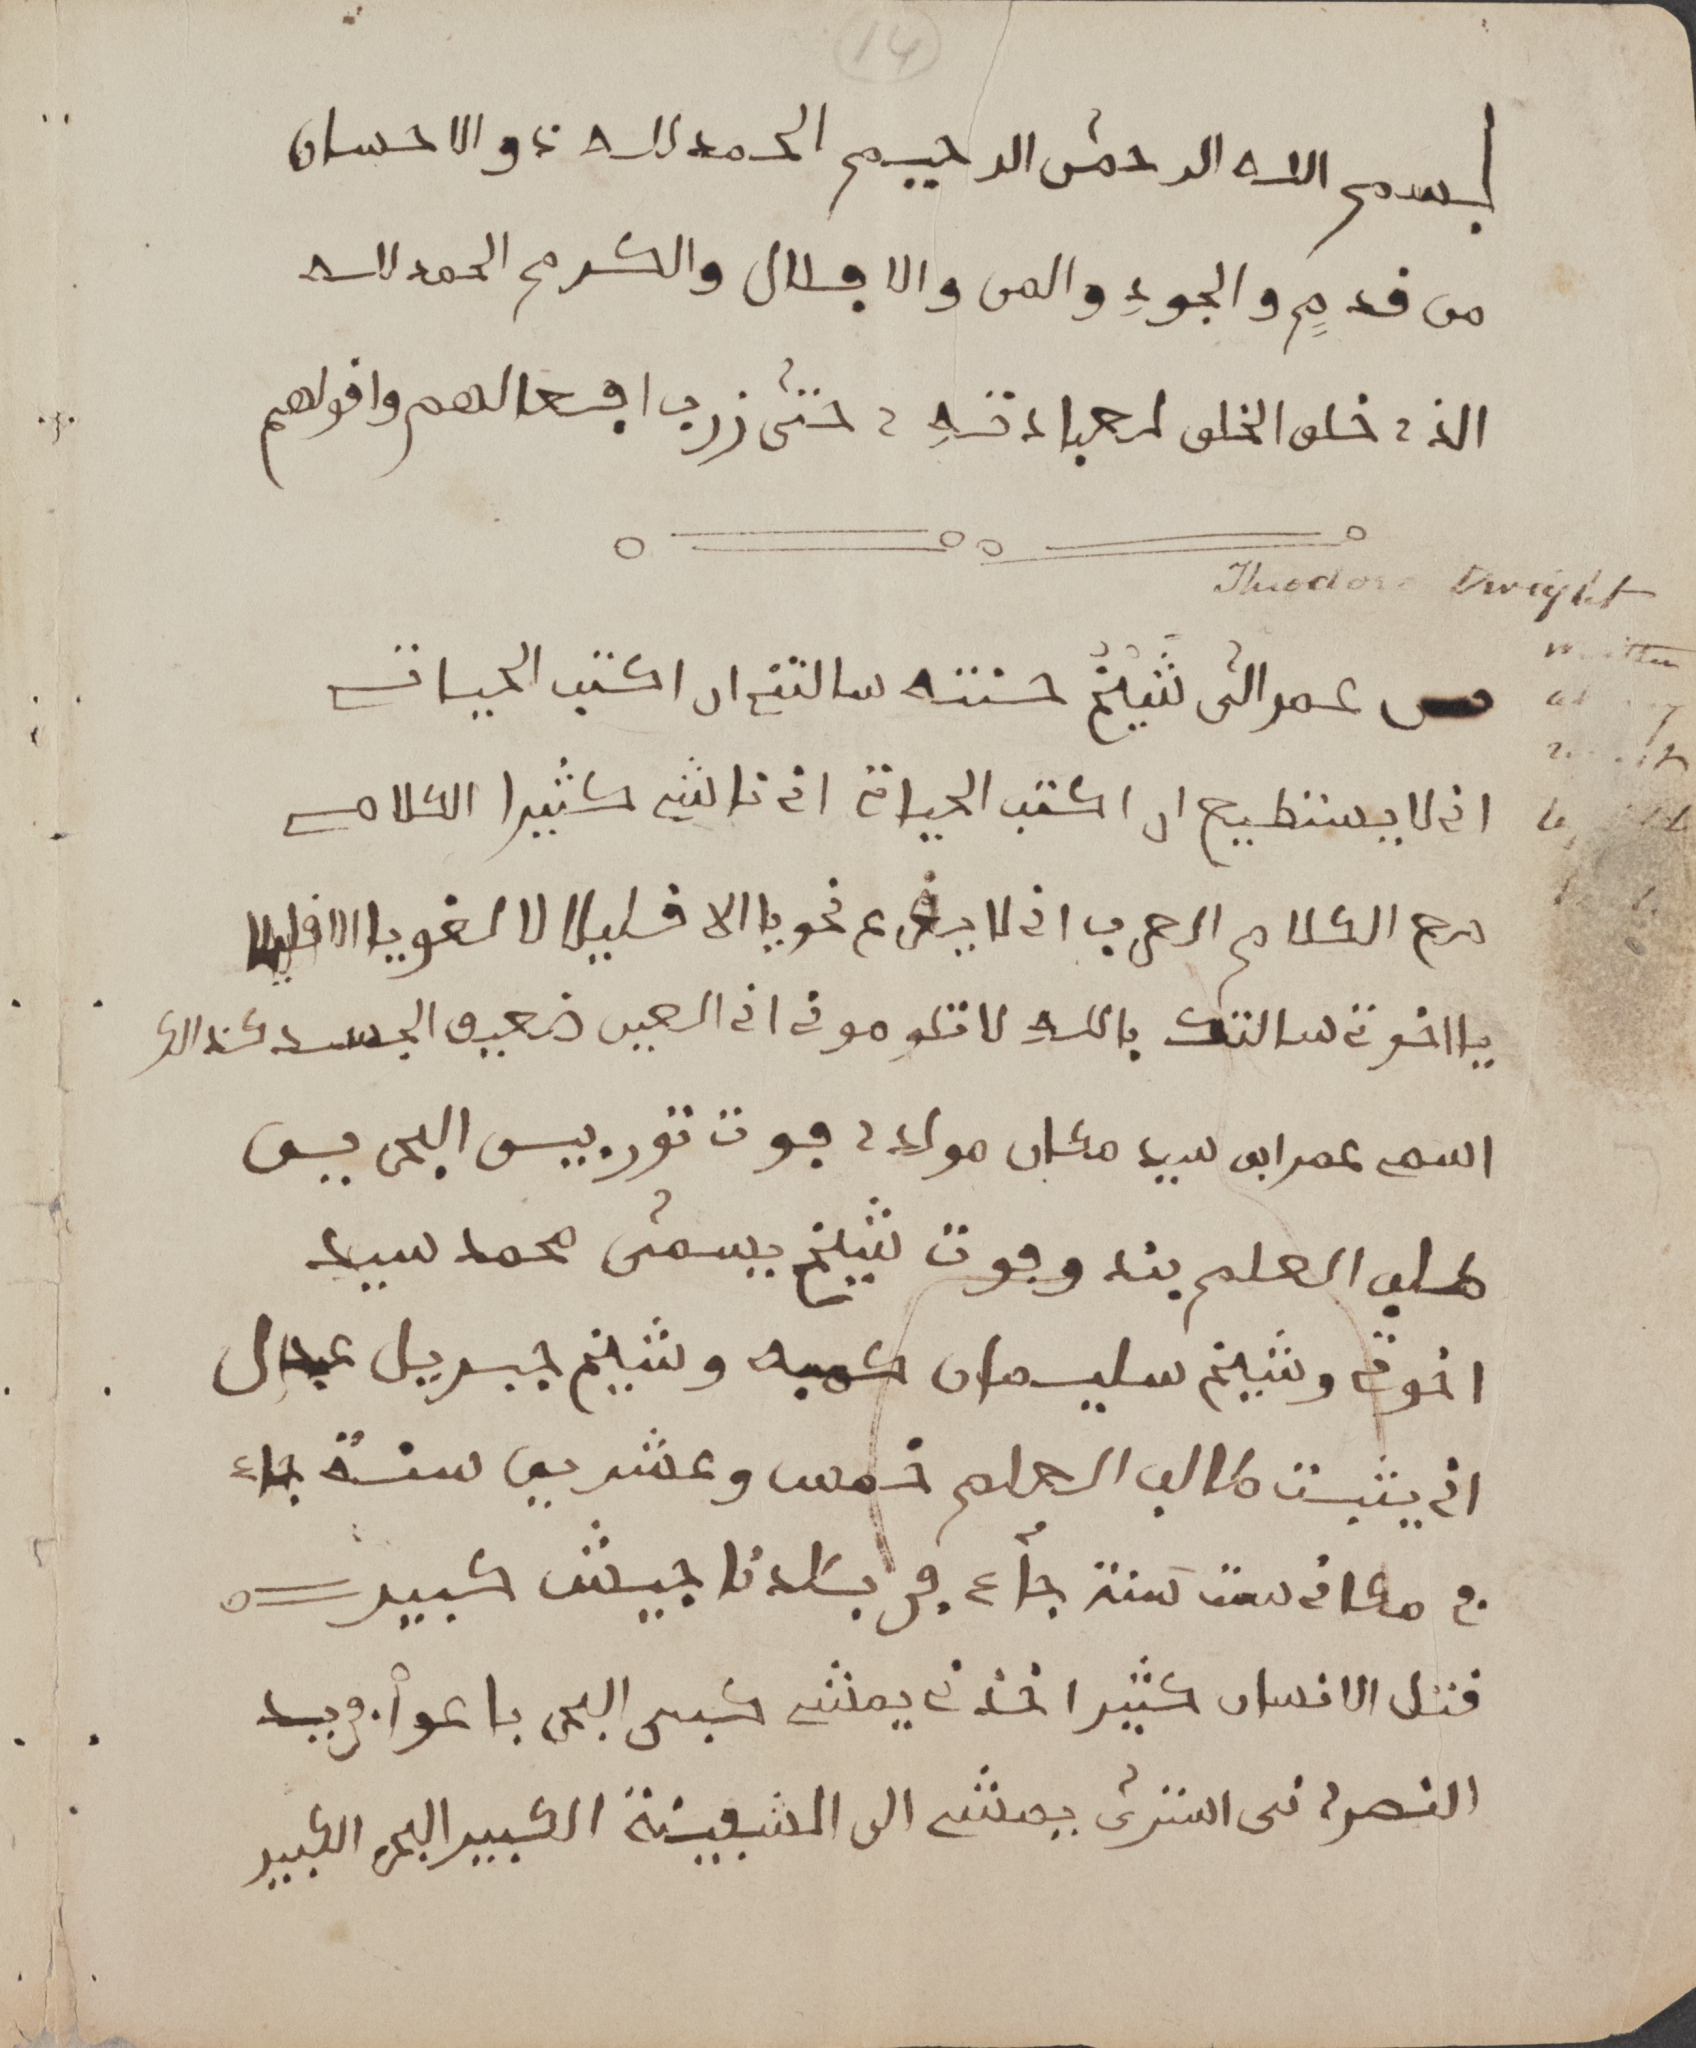 14
بسم الله الرحمن الرحيم الحمد لله ذو الاحسان
من قدمٍ والجودِ والمن والافلال والكرم الحمد لله
الذي خلق الخلق لعبادتهِ حتى زرب افعالهم واقولهم
Theodore Dwight
written
من عمر الى شَيْخُ حنته سالتنى ان اكتب الحياتى
انى لا يستطيع ان اكتب الحياتى انى ناشى كثيرا الكلامى
مع الكلام العرب انى لا نحويا الا قليلا لا لغويا الا قليلا
يا اخوتى سالتك باللهِ لا تلومونى انى العين ضعيف الجسد كذالك
اسمى عمر ابن سيد مكان مولدي فوت تور بيس البحرين
طلب العلم بند وفوت شيخ يسمى محمد سيد
اخوتى وشيخ سليمان كمبه وشيخ جبريل عبدال
انى يثبت طالب العلم خمس وعشرين سنة جاء
فى مكانى ست سَنة جاء فى بلدنا جيش كبير
قتل الانسان كثيرا اخذنى يمشى كبى البحر باعوا فى يد
النصرانى اشترى يمشى الى الشفينة الكبير البحر الكبير